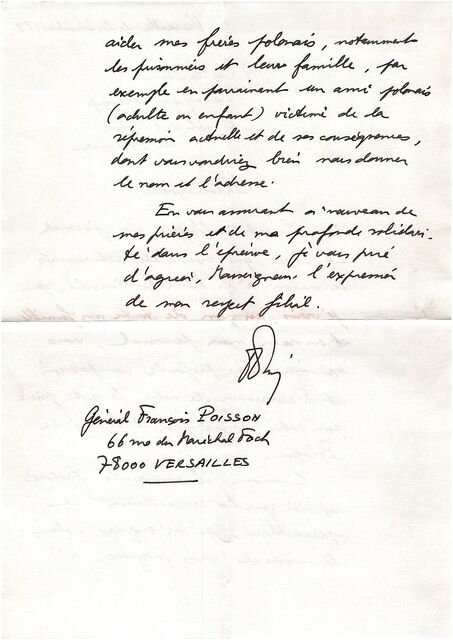 aider mes frères polonais, notamment
les prisonniers et leur famille, par
exemple en parrainant un ami polonais
(adulte ou enfant) victime de la
répression actuelle et de ses conséquences,
dont vous voudriez bien nous donner
le nom et l'adresse.
En vous assurant à nouveau de
mes prières et de ma profonde solidari-
té dans l'épreuve, je vous prie
d'agréer, Monseigneur l'expression
de mon respect filial.
Général François POISSON
66 rue du Maréchal Foch
78000 VERSAILLES